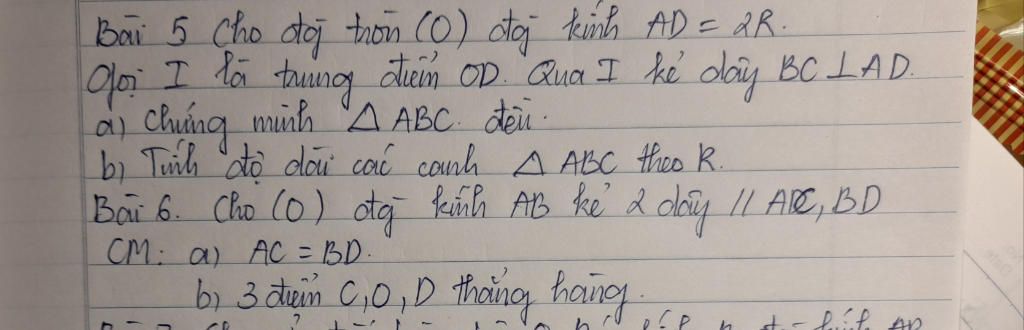 Bài 5 Cho đtg tròn (O) đtg kính AD = 2R.
Gọi I là trung điểm OD. Qua I kẻ dây BC ⊥ AD.
a) Chứng minh △ ABC. đều.
b) Tính độ dài các cạnh △ ABC theo R.
Bài 6. Cho (O) đtg kính AB kẻ 2 dây // AC, BD
CM: a) AC = BD.
b) 3 điểm C, O, D thẳng hàng.